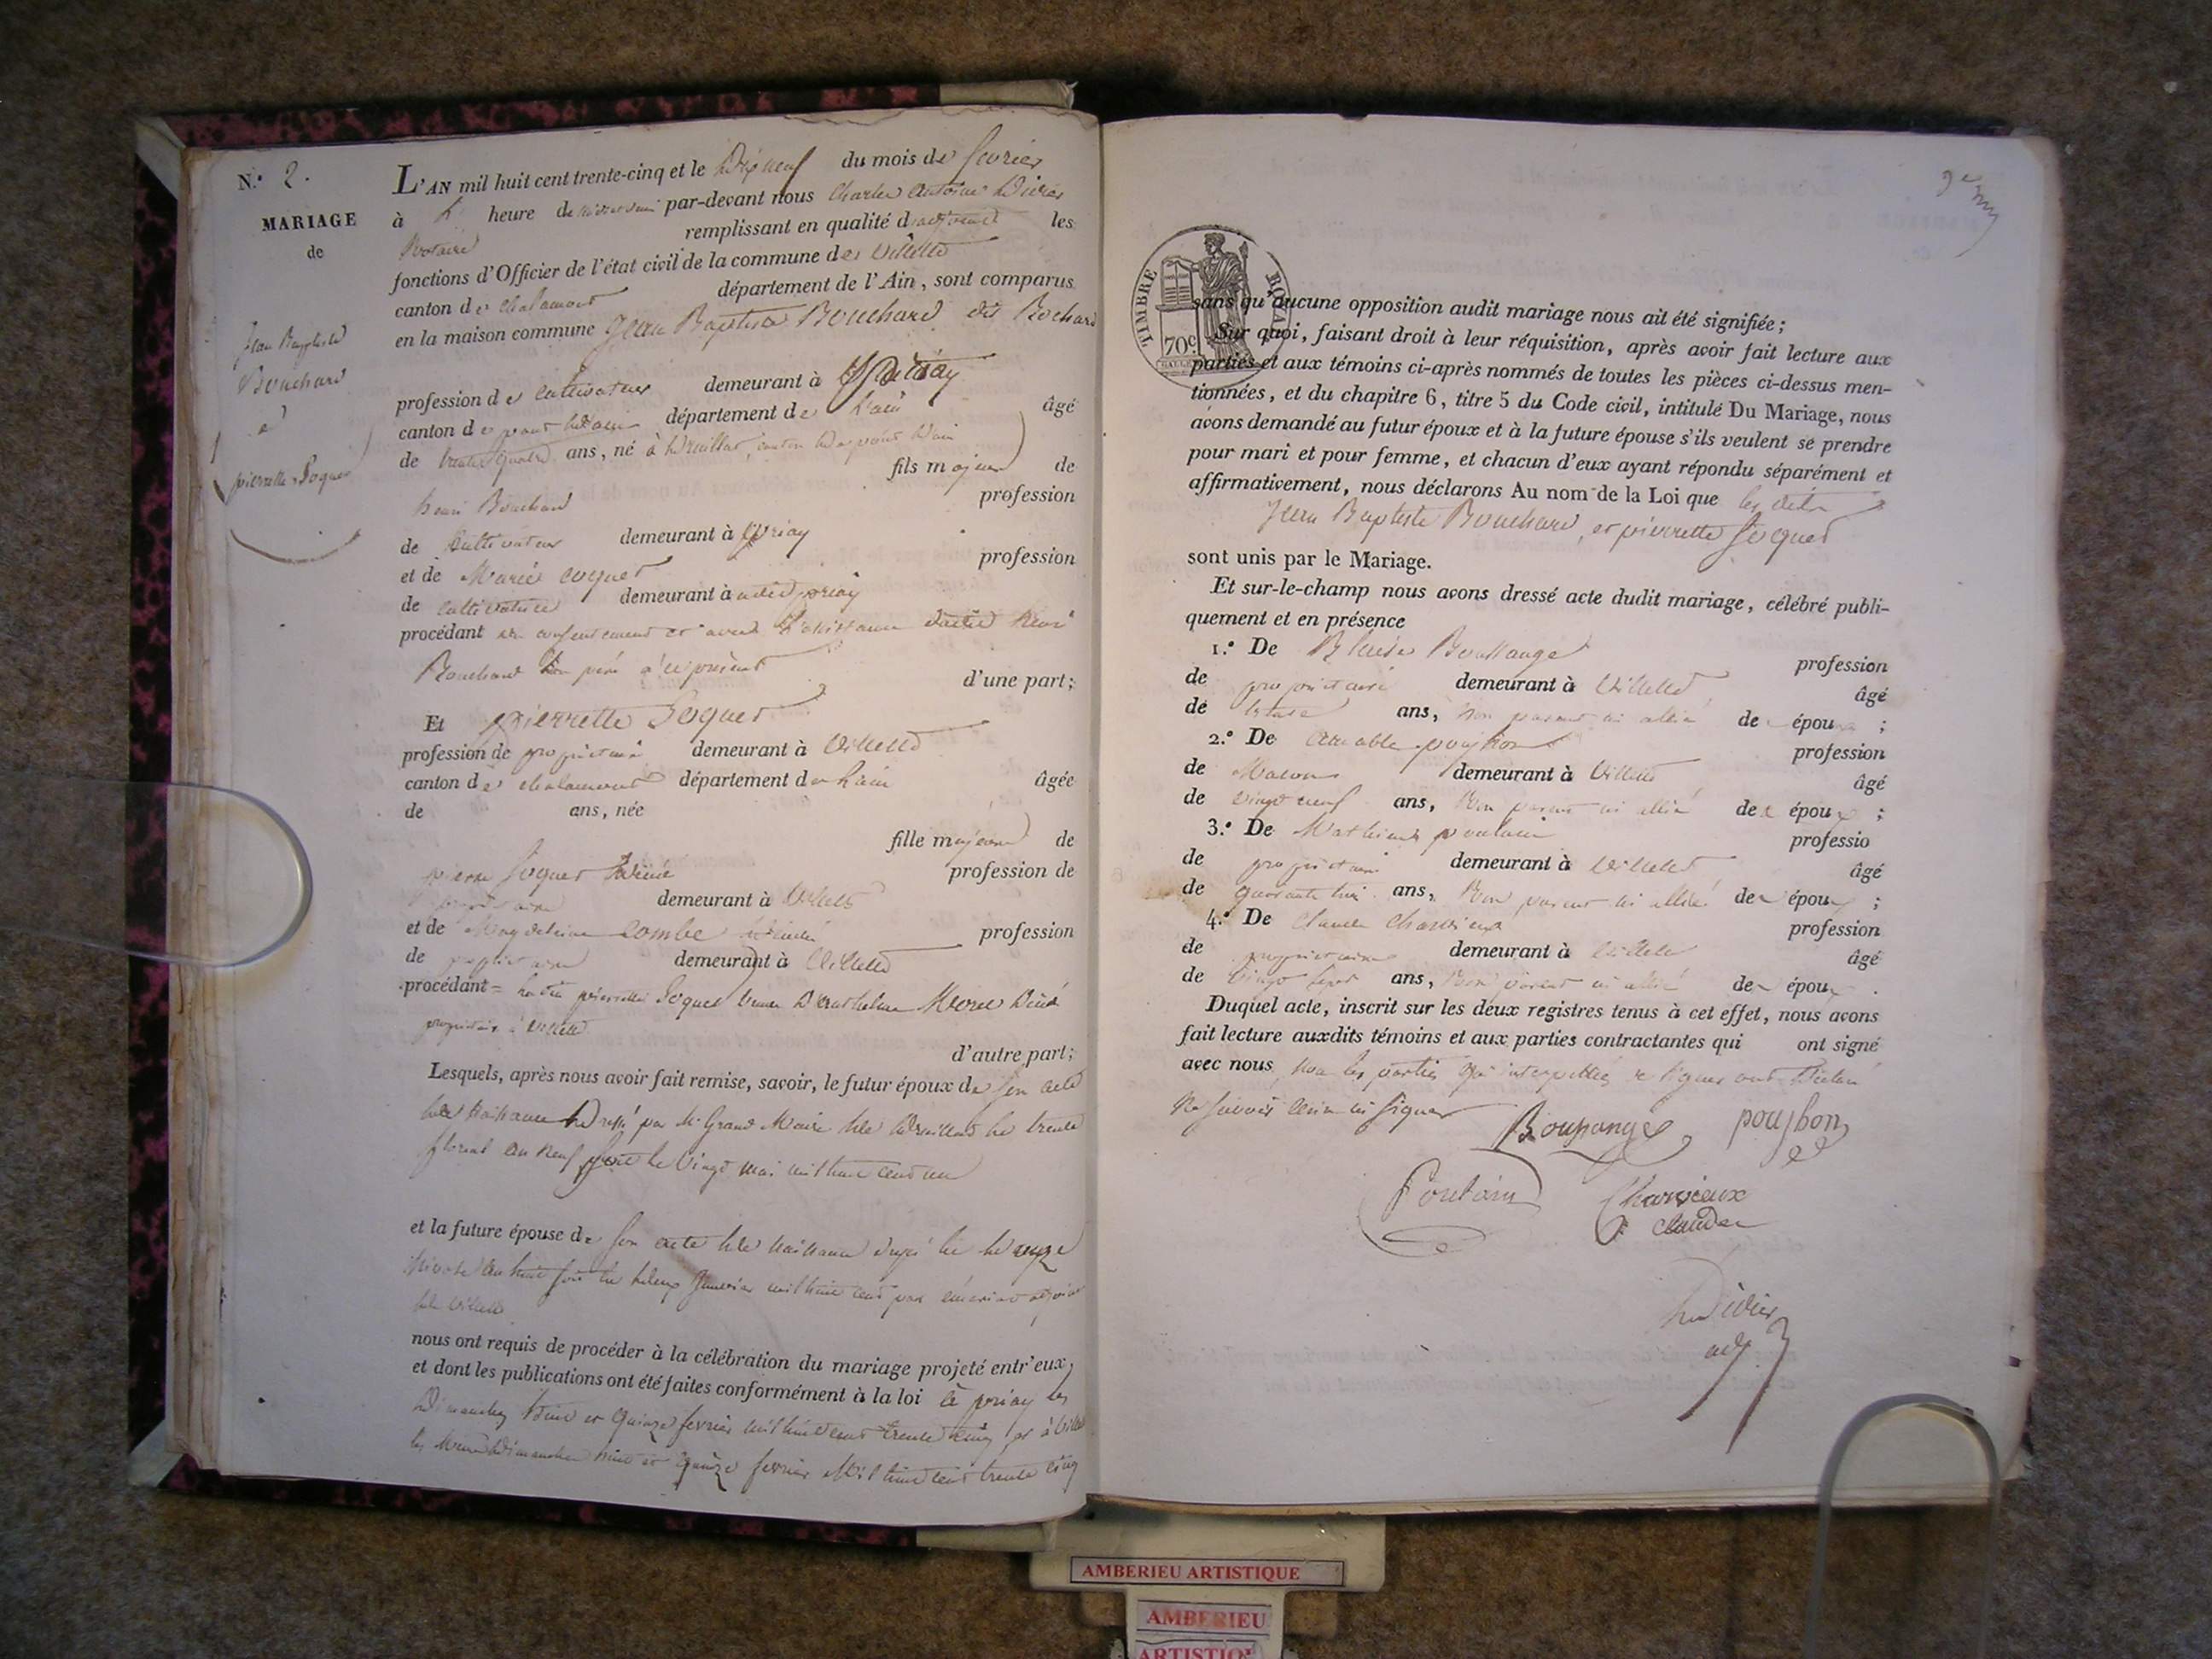 N.° 2.
MARIAGE
de
Jean Baptiste
Bouchard
et
pierrette Joquet
L'AN mil huit cent trente-cinq et le Dix neuf du mois de fevrier
à heure de par-devant nous Charles Antoine Didier
Notaire remplissant en qualité d'adjoint les
fonctions d'Officier de l'état civil de la commune de Villette
canton de chalamont département de l'Ain, sont comparus
en la maison commune Jean Baptiste Bouchard dit Bochard
profession de cultivateur demeurant à Priay
canton de pont d'ain département de l'ain âgé
de trente quatre ans, né à druillat, canton de pont d'ain
fils majeur de
henri Bouchard profession
de Cultivateur demeurant à priay
et de Marie coquet profession
de cultivatrice demeurant à audit priay
procédant du consentement et avec l'assistance dudit henri
Bouchard son père à ce présent
d'une part;
Et pierrette Joquet
profession de propriétaire demeurant à Villette
canton de chalamont département de l'ain âgée
de ans, née
fille majeure de
pierre Joquet profession de
propriétaire demeurant à Villette
et de Magdeleine Combe profession
de propriétaire demeurant à Villette
procédant = la dite pierrette Joquet veuve
propriétaire à Villette
d'autre part;
Lesquels, après nous avoir fait remise, savoir, le futur époux de son acte
de naissance dressé par Mr Grand Maire de druillat le trente
floreal an neuf soit le vingt mai mil huit cent un
et la future épouse de son acte de naissance
nivose an huit soit le deux Janvier mil huit cent par adjoint
de Villette
nous ont requis de procéder à la célébration du mariage projeté entr'eux,
et dont les publications ont été faites conformément à la loi à priay les
Dimanches huit et Quinze fevrier mil huit cent trente cinq et à Villette
les Mêmes Dimanches huit et quinze fevrier Mil huit cent trente cinq
TIMBRE ROYAL
70c
sans qu'aucune opposition audit mariage nous ait été signifiée;
Sur quoi, faisant droit à leur réquisition, après avoir fait lecture aux
parties et aux témoins ci-après nommés de toutes les pièces ci-dessus men-
tionnées, et du chapitre 6, titre 5 du Code civil, intitulé Du Mariage, nous
avons demandé au futur époux et à la future épouse s'ils veulent se prendre
pour mari et pour femme, et chacun d'eux ayant répondu séparément et
affirmativement, nous déclarons Au nom de la Loi que les dits
Jean Baptiste Bouchard, et pierrette Joquet
sont unis par le Mariage.
Et sur-le-champ nous avons dressé acte dudit mariage, célébré publi-
quement et en présence
1.° De Blaise Boussange profession
de propriétaire demeurant à Villette âgé
de ans, non parent ni allié de époux ;
2.° De Aimable pouzhon profession
de Maçon demeurant à Villette âgé
de vingt neuf ans, Non parent ni allié des époux ;
3.° De Mathieu poulain professio
de propriétaire demeurant à Villette âgé
de quarante huit ans, Non parent ni allié de époux ;
4.° De Claude Charvieux profession
de propriétaire demeurant à Villette âgé
de vingt sept ans, Non parent ni allié de époux .
Duquel acte, inscrit sur les deux registres tenus à cet effet, nous avons
fait lecture auxdits témoins et aux parties contractantes qui ont signé
avec nous non les parties qui interpellées de signer ont déclaré
ne savoir écrire ni signer
Boussange pouzhon
Poulain Charvieux
claude
Didier
adj
AMBERIEU ARTISTIQUE
AMBERIEU
ARTISTIQUE